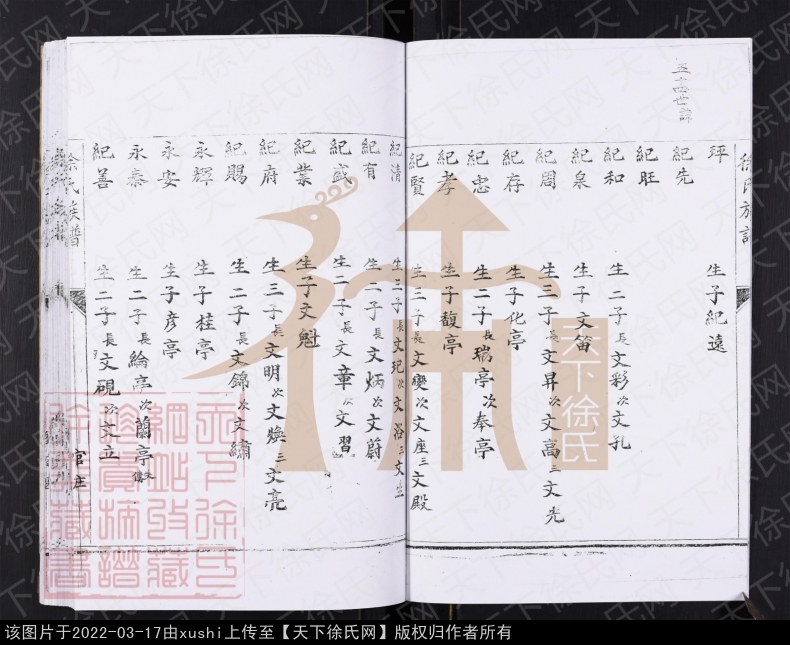 徐氏族譜
坪 生子紀遠
紀先
紀旺
紀和 生二子長文彩次文孔
紀泉 生子文笛
紀周 生三子長文昇次文高三文光
紀存 生子化亭
紀忠 生二子長瑞亭次奉亭
紀孝 生子馥亭
紀賢 生三子長文變次文座三文殿
紀清 生三子長文玘次文浴三文生
紀有 生二子長文炳次文蔚
紀盛 生二子長文章次文習
紀業 生子文魁
紀府 生三子長文明次文煥三文亮
紀賜 生二子長文錦次文繡
永輝 生子桂亭
永安 生子彦亭
永泰 生二子長綸亭次蘭亭
紀善 生二子長文硯次文立
徐氏族譜
官庄
天下徐氏
该图片于2022-03-17由xushi上传至【天下徐氏网】版权归作者所有